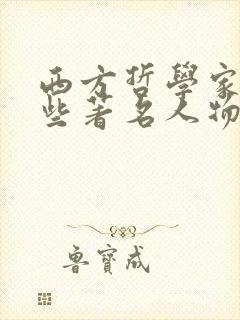 西方哲學家
些著名人物
魯寶成